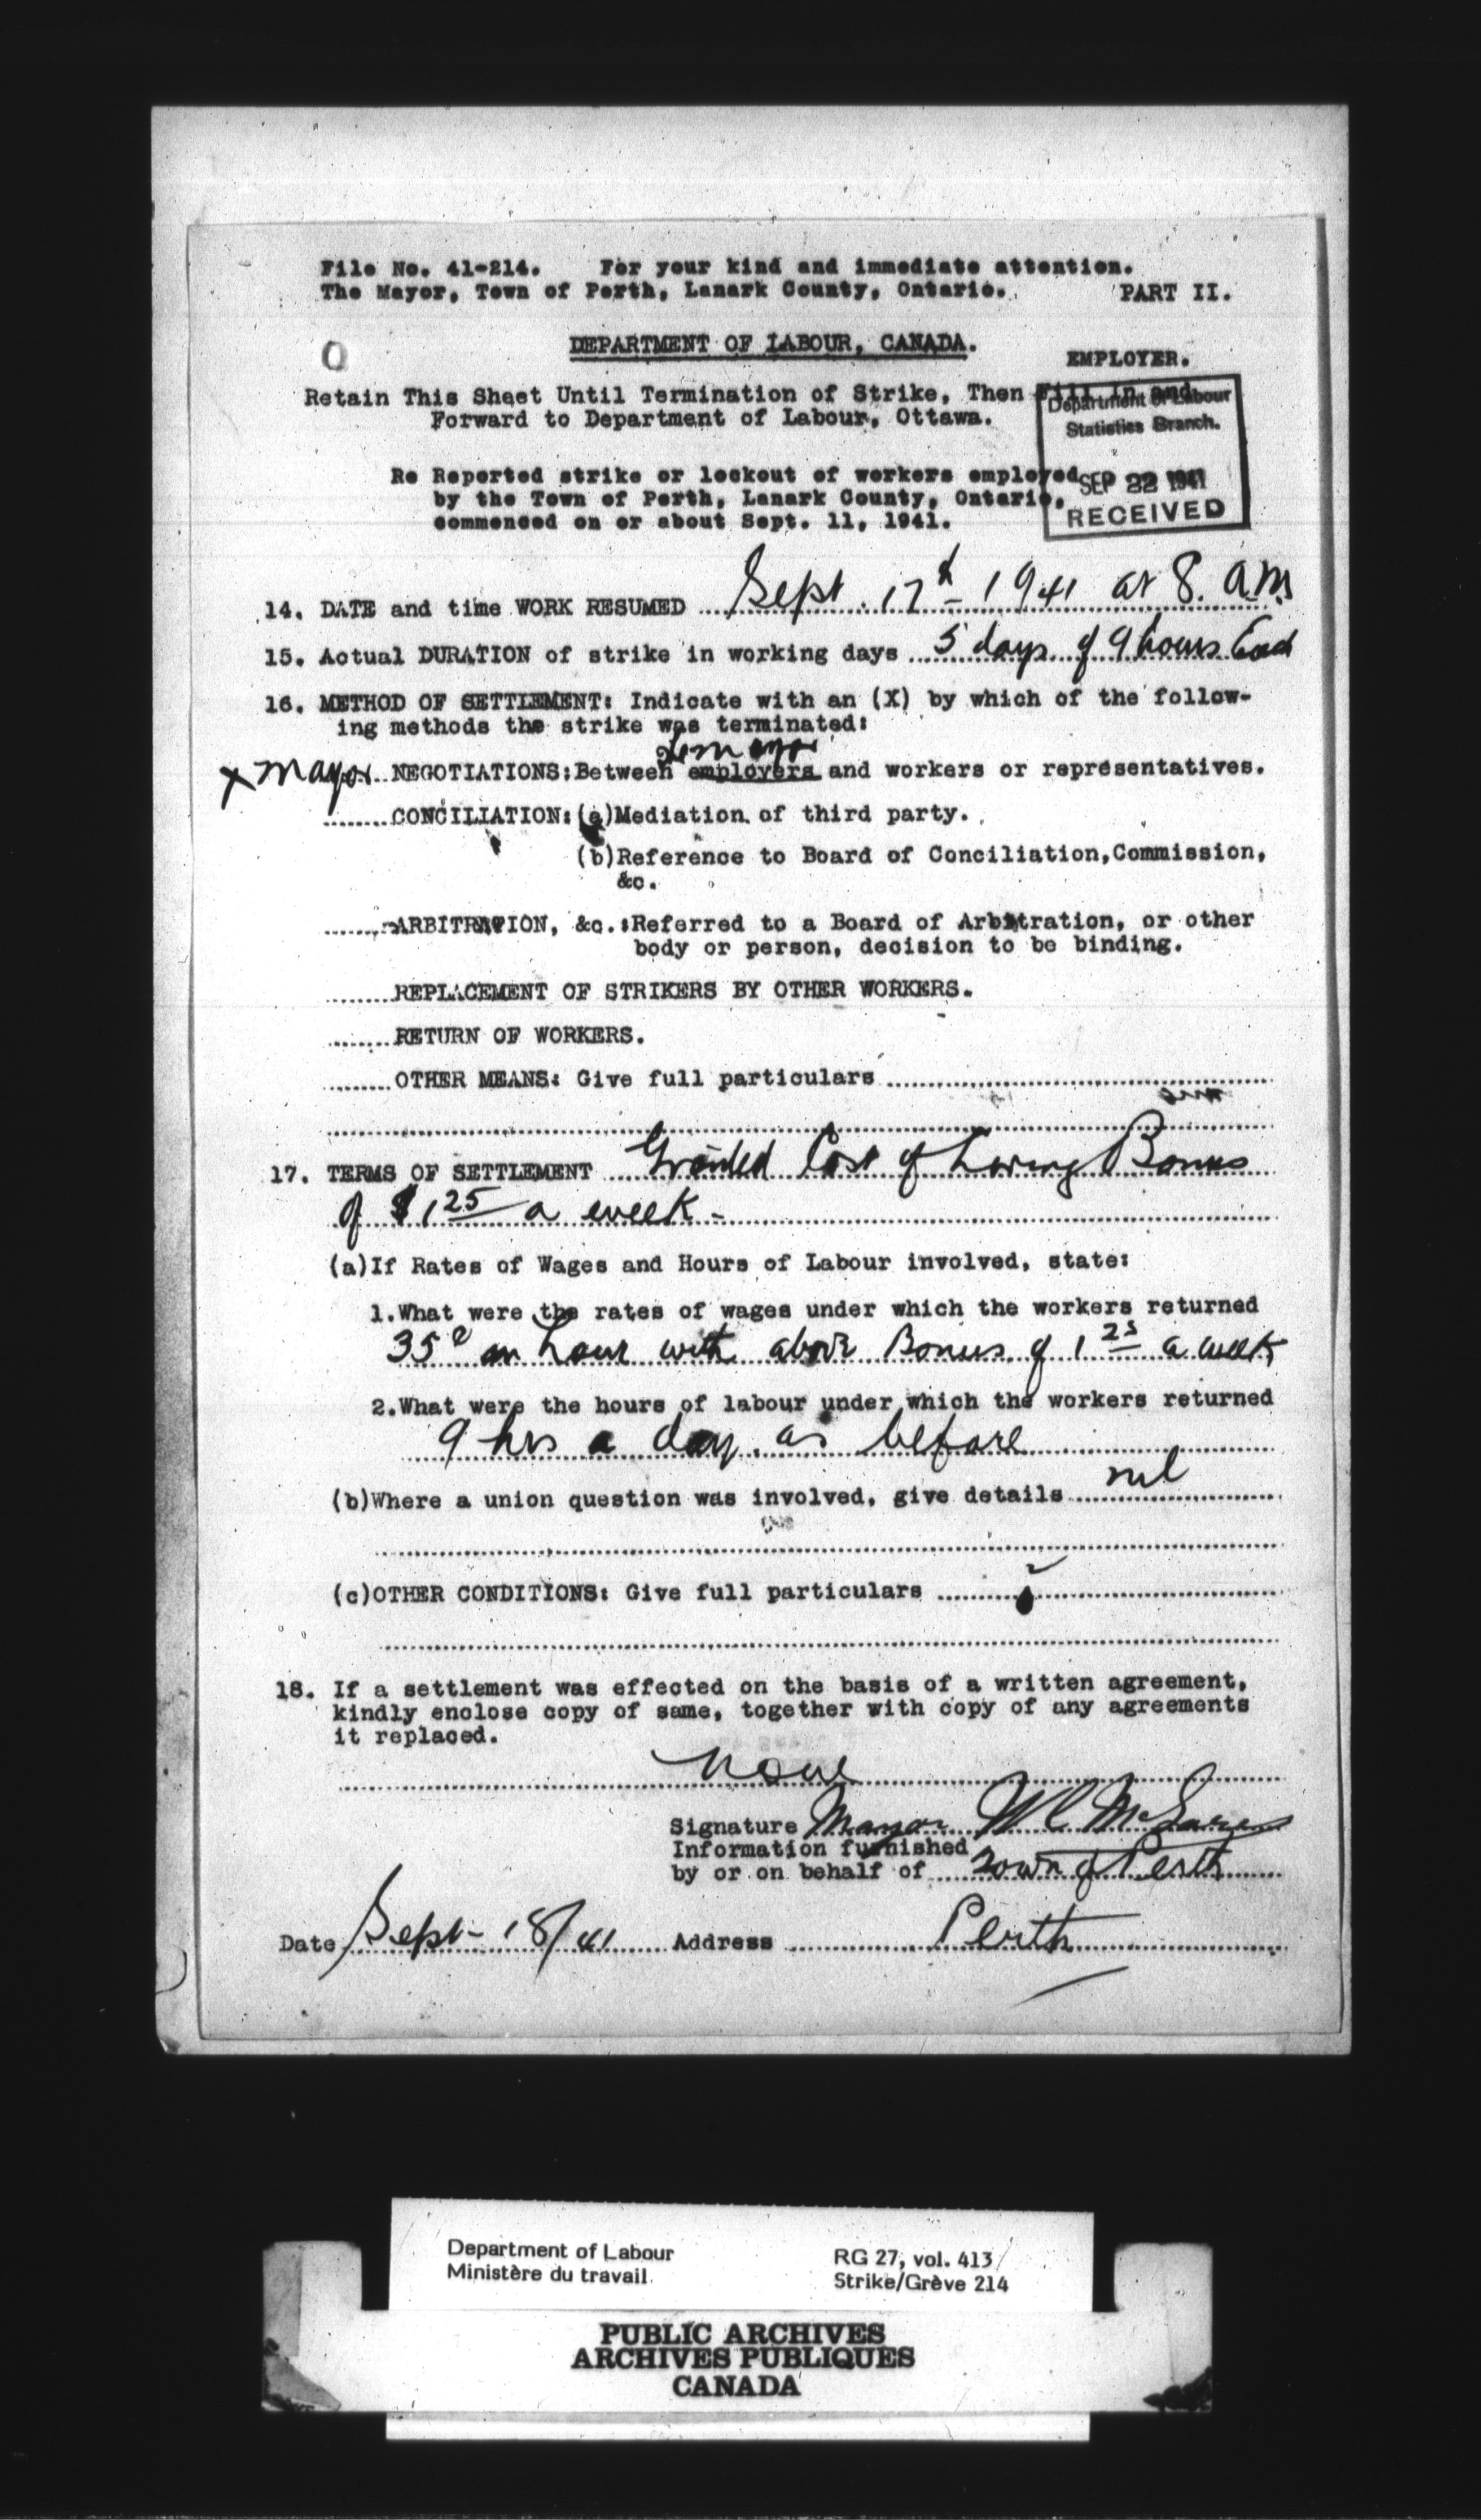 File No. 41-214. For your kind and immediate attention.
The Mayor, Town of Perth, Lanark County, Ontario. PART II.
DEPARTMENT OF LABOUR, CANADA.
EMPLOYER.
Retain This Sheet Until Termination of Strike, Then Fill in and
Forward to Department of Labour, Ottawa.
Department of Labour
Statistics Branch.
SEP 22 1941
RECEIVED
Re Reported strike or lockout of workers employed
by the Town of Perth, Lanark County, Ontario,
commenced on or about Sept. 11, 1941.
14. DATE and time WORK RESUMED Sept. 17 1941 at 8. a.m.
15. Actual DURATION of strike in working days 5 days of 9 hours Each
16. METHOD OF SETTLEMENT: Indicate with an (X) by which of the follow-
ing methods the strike was terminated:
mayor
x mayor NEGOTIATIONS: Between employers and workers or representatives.
CONCILIATION: (a) Mediation of third party.
(b) Reference to Board of Conciliation, Commission,
&c.
ARBITRATION, &c.: Referred to a Board of Arbitration, or other
body or person, decision to be binding.
REPLACEMENT OF STRIKERS BY OTHER WORKERS.
RETURN OF WORKERS.
OTHER MEANS: Give full particulars
17. TERMS OF SETTLEMENT Granted Cost of Living Bonus
of $1.25 a week -
(a) If Rates of Wages and Hours of Labour involved, state:
1. What were the rates of wages under which the workers returned
35¢ an hour with above Bonus of 1 25 a week
2. What were the hours of labour under which the workers returned
9 hrs a day. as before
(b) Where a union question was involved, give details nil
(c) OTHER CONDITIONS: Give full particulars
18. If a settlement was effected on the basis of a written agreement,
kindly enclose copy of same, together with copy of any agreements
it replaced.
none
Signature Mayor W C
Information furnished
by or on behalf of Town of Perth
Date Sept - 18/41 Address Perth
Department of Labour
Ministère du travail
RG 27, vol. 413
Strike/Grève 214
PUBLIC ARCHIVES
ARCHIVES PUBLIQUES
CANADA